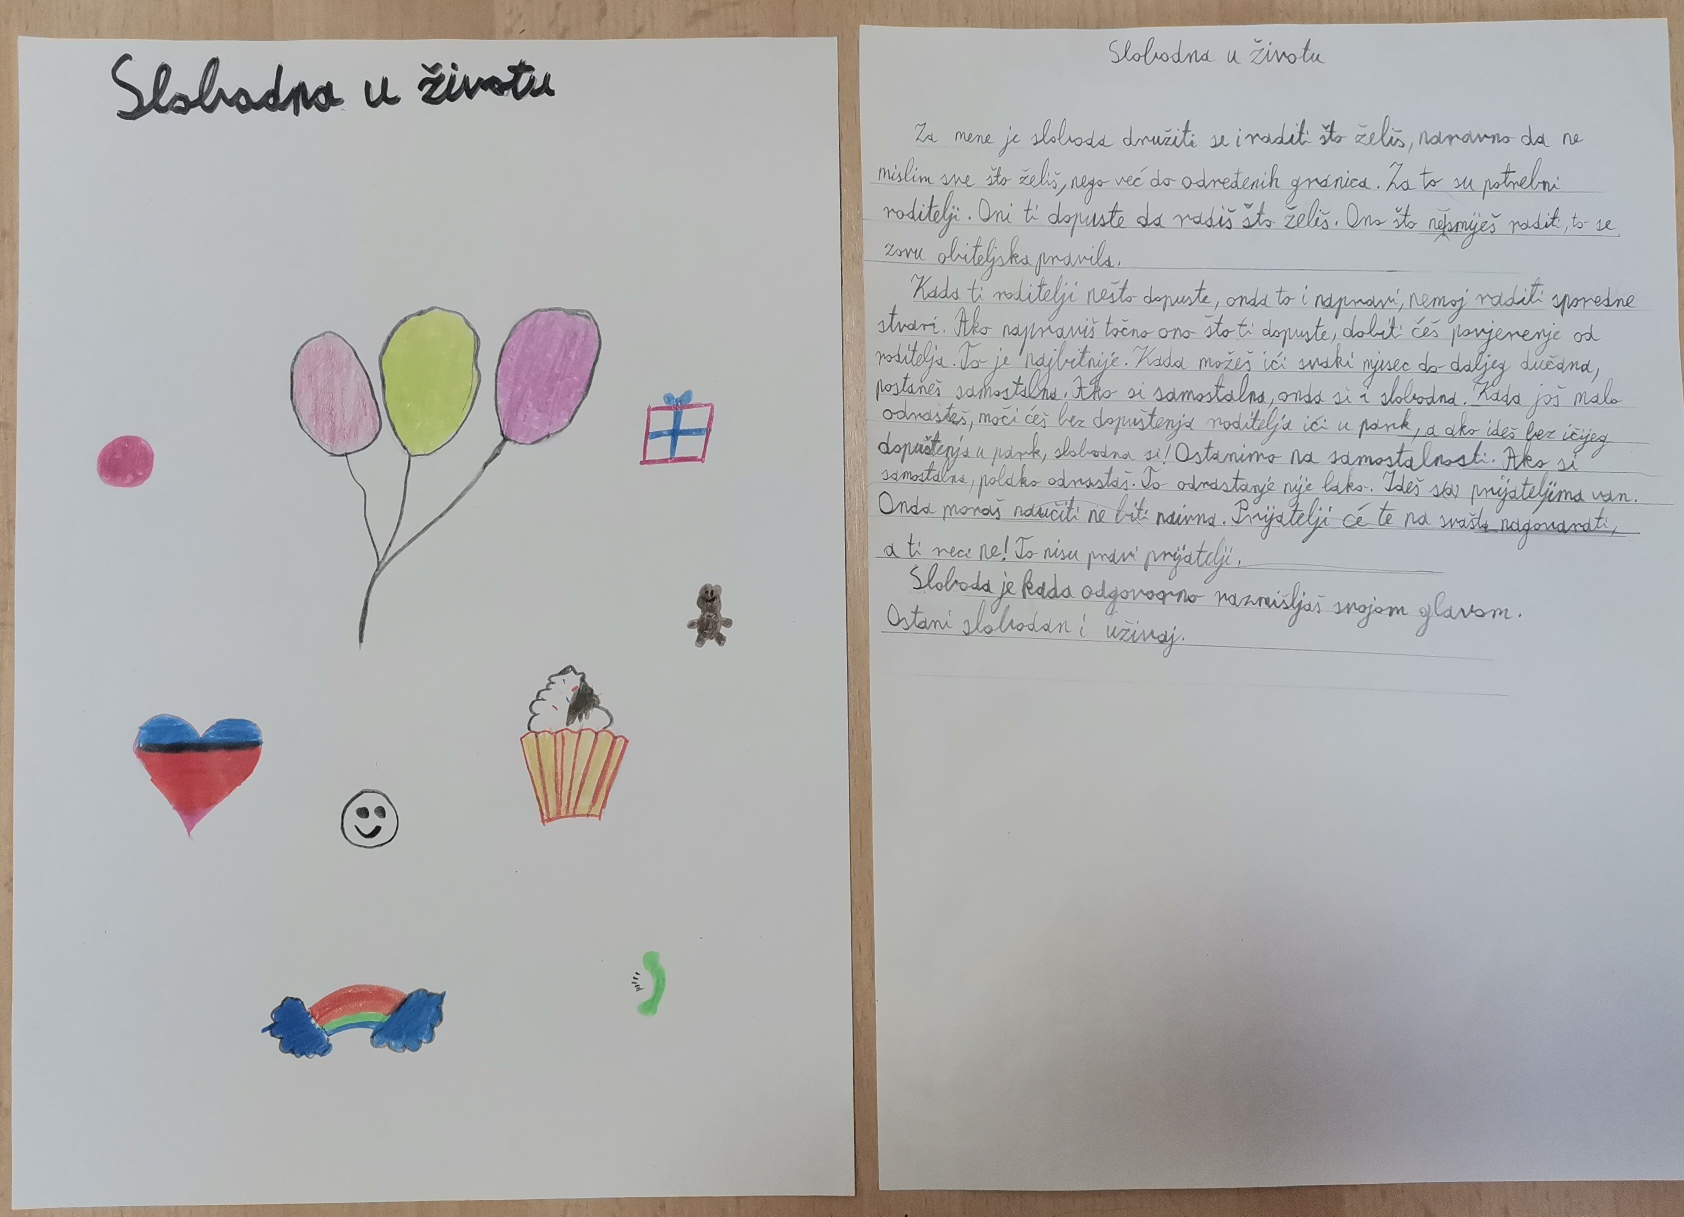 Slobodna u životu
Slobodna u životu
Za mene je sloboda družiti se i raditi što želiš, naravno da ne
mislim sve što želiš, nego već do određenih granica. Za to su potrebni
roditelji. Oni ti dopuste da radiš što želiš. Ono što ne smiješ raditi, to se
zovu obiteljska pravila.
Kada ti roditelji nešto dopuste, onda to i napravi, nemoj raditi sporedne
stvari. Ako napraviš točno ono što ti dopuste, dobiti ćeš povjerenje od
roditelja. To je najbitnije. Kada možeš ići svaki mjesec do daljeg dućana,
postaneš samostalna. Ako si samostalna, onda si i slobodna. Kada još malo
odrasteš, moći ćeš bez dopuštenja roditelja ići u park, a ako ideš bez ičijeg
dopuštenja u park, slobodna si! Ostanimo na samostalnosti. Ako si
samostalna, polako odrastaš. To odrastanje nije lako. Ideš sa prijateljima van.
Onda moraš naučiti ne biti naivna. Prijatelji će te na svašta nagovarati,
a ti reci ne! To nisu pravi prijatelji.
Sloboda je kada odgovorno razmišljaš svojom glavom.
Ostani slobodan i uživaj.